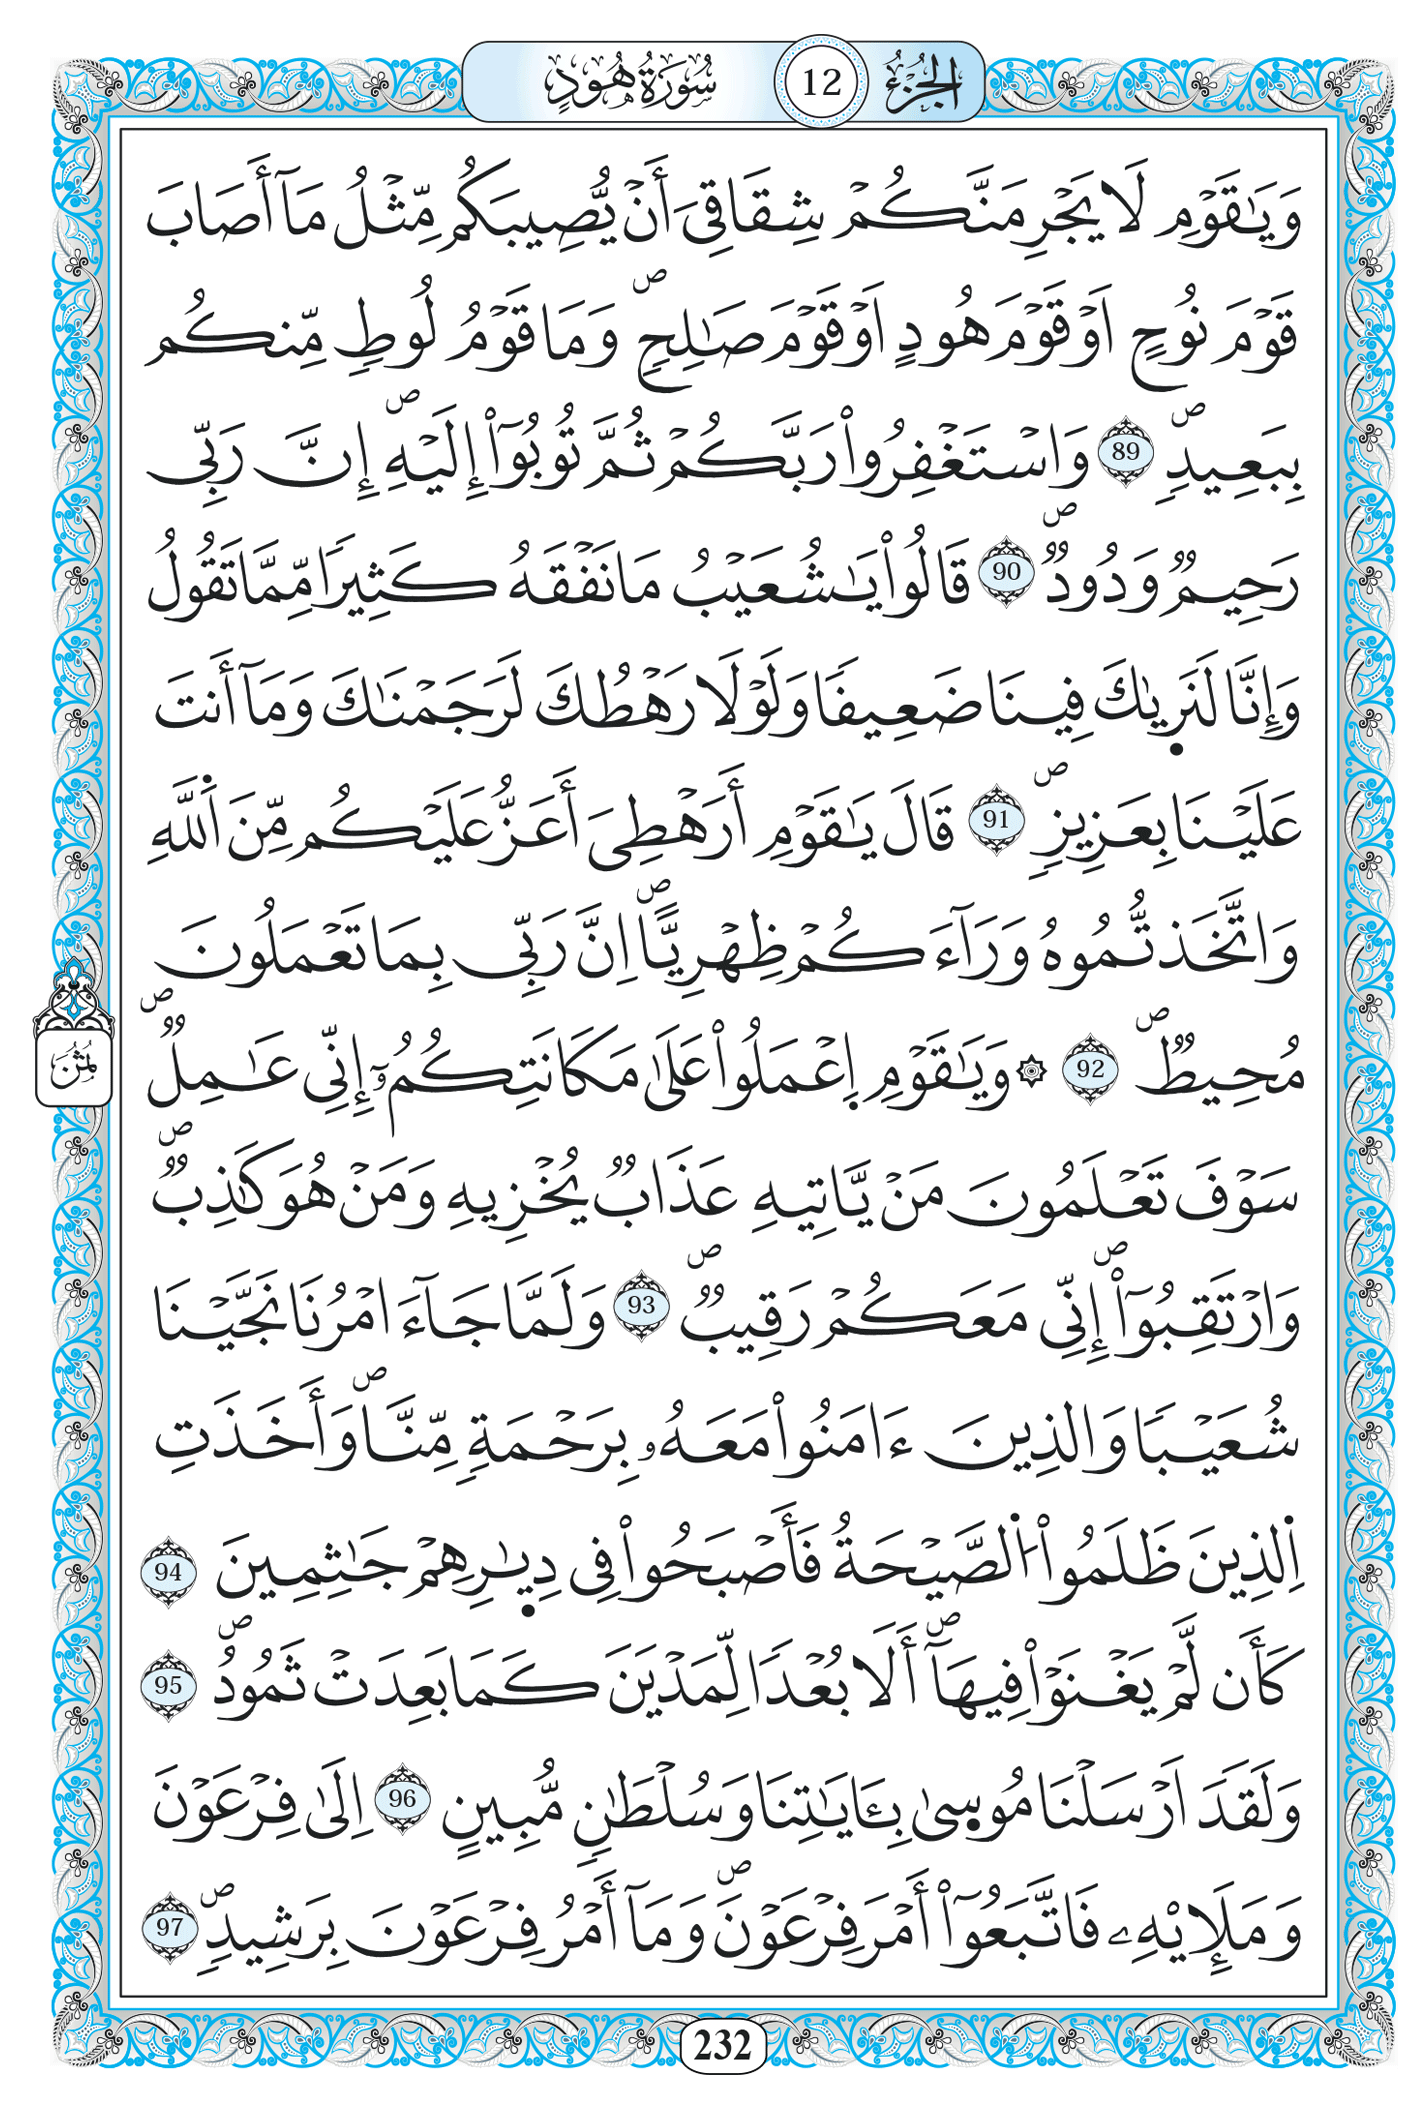 الجزء 12 سورة هود
وَيَٰقَوْمِ لَا يَجْرِمَنَّكُمْ شِقَاقِيَ أَنْ يُّصِيبَكُم مِّثْلُ مَآ أَصَابَ
قَوْمَ نُوحٍ اَوْ قَوْمَ هُودٍ اَوْ قَوْمَ صَٰلِحٍۖ وَمَا قَوْمُ لُوطٍ مِّنكُم
بِبَعِيدٍۖ 89 وَاسْتَغْفِرُواْ رَبَّكُمْ ثُمَّ تُوبُوٓاْ إِلَيْهِۖ إِنَّ رَبِّي
رَحِيمٌ وَدُودٌۖ 90 قَالُواْ يَٰشُعَيْبُ مَا نَفْقَهُ كَثِيرًا مِّمَّا تَقُولُ
وَإِنَّا لَنَرٜيٰكَ فِينَا ضَعِيفًا وَلَوْلَا رَهْطُكَ لَرَجَمْنَٰكَ وَمَآ أَنتَ
عَلَيْنَا بِعَزِيزٍۖ 91 قَالَ يَٰقَوْمِ أَرَهْطِيَ أَعَزُّ عَلَيْكُم مِّنَ اَ۬للَّهِ
وَاتَّخَذتُّمُوهُ وَرَآءَكُمْ ظِهْرِيًّاۖ اِنَّ رَبِّي بِمَا تَعْمَلُونَ
مُحِيطٌۖ 92 ۞ وَيَٰقَوْمِ اِعْمَلُواْ عَلَىٰ مَكَانَتِكُمُۥٓ إِنِّي عَٰمِلٌۖ
سَوْفَ تَعْلَمُونَ مَنْ يَّاتِيهِ عَذَابٌ يُخْزِيهِ وَمَنْ هُوَ كَٰذِبٌۖ
وَارْتَقِبُوٓاْۖ إِنِّي مَعَكُمْ رَقِيبٌۖ 93 وَلَمَّا جَآءَ امْرُنَا نَجَّيْنَا
شُعَيْبًا وَالذِينَ ءَامَنُواْ مَعَهُۥ بِرَحْمَةٍ مِّنَّاۖ وَأَخَذَتِ
اِ۬لذِينَ ظَلَمُواْ اُ۬لصَّيْحَةُ فَأَصْبَحُواْ فِي دِيٰٜرِهِمْ جَٰثِمِينَ 94
كَأَن لَّمْ يَغْنَوْاْ فِيهَآۖ أَلَا بُعْدًا لِّمَدْيَنَ كَمَا بَعِدَتْ ثَمُودُۖ 95
وَلَقَدَ اَرْسَلْنَا مُوسٜىٰ بِـَٔايَٰتِنَا وَسُلْطَٰنٍ مُّبِينٍ 96 اِلَىٰ فِرْعَوْنَ
وَمَلَإِيْهِۦ فَاتَّبَعُوٓاْ أَمْرَ فِرْعَوْنَۖ وَمَآ أَمْرُ فِرْعَوْنَ بِرَشِيدٍۖ 97
ثُمُن
232